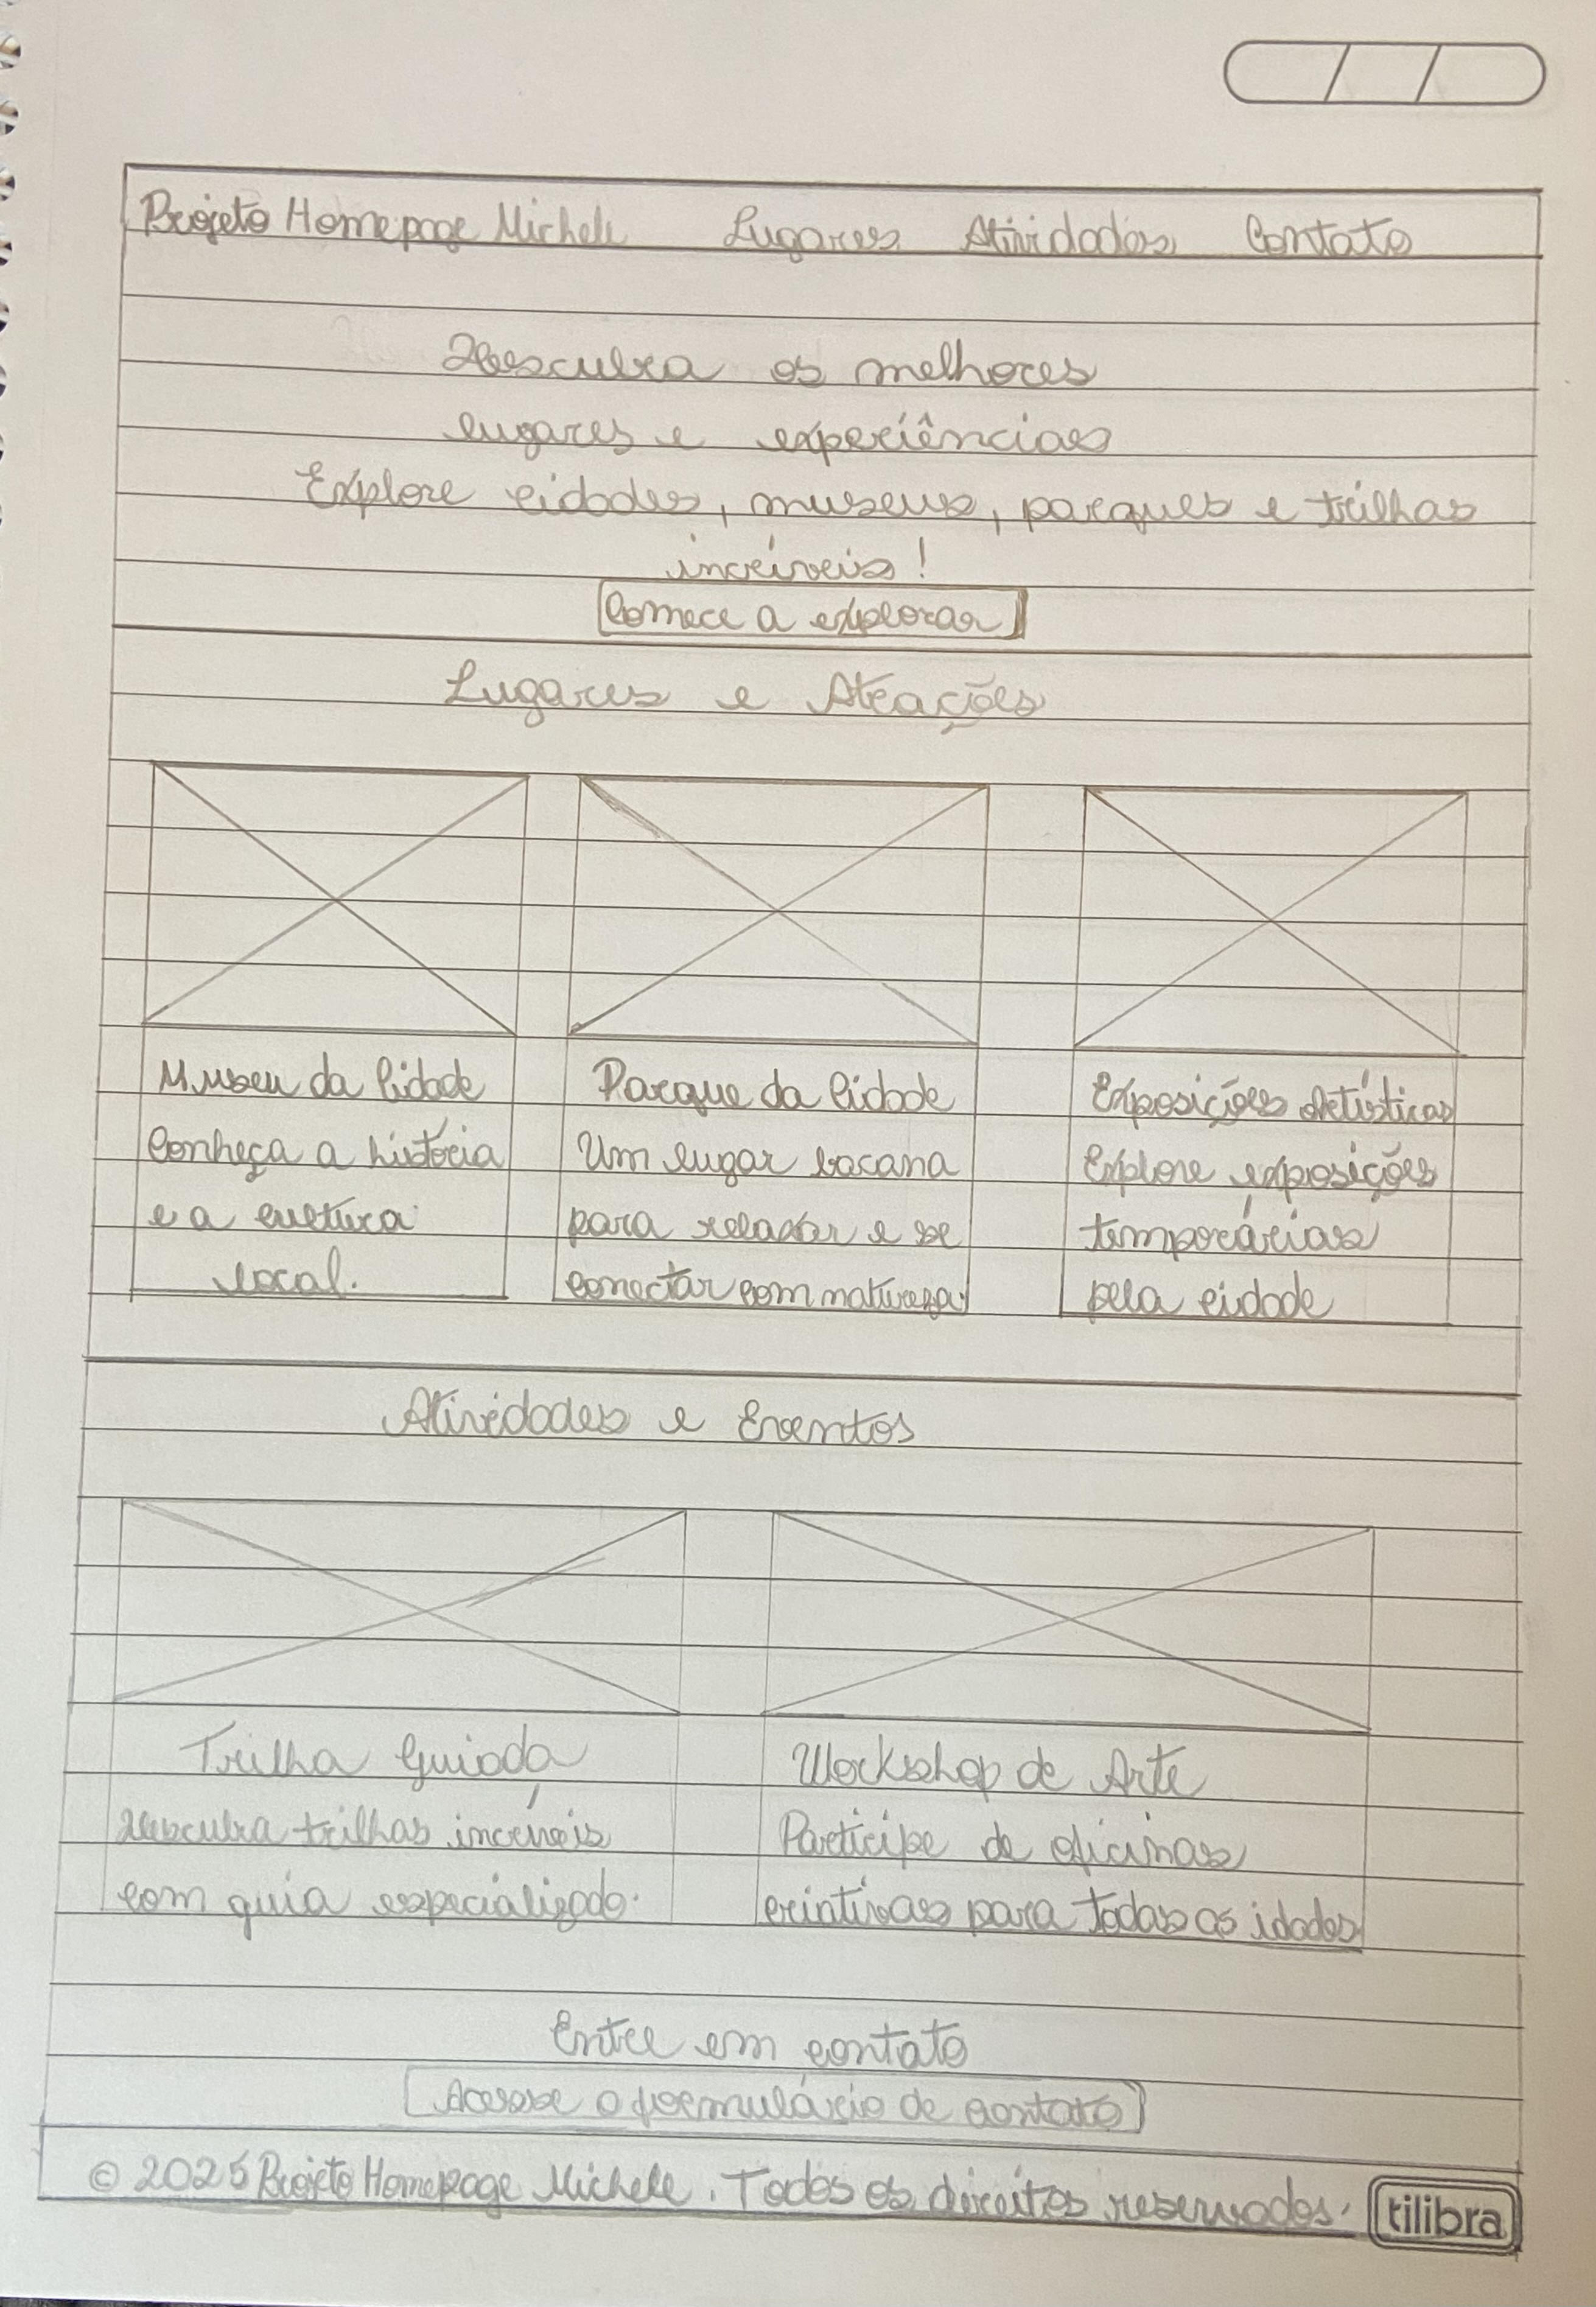 Projeto Homepage Michele Lugares Atividades Contato
Descubra os melhores
lugares e experiências
Explore cidades, museus, parques e trilhas
incríveis!
Comece a explorar
Lugares e Atrações
Museu da Cidade
Conheça a história
e a cultura
local.
Parque da Cidade
Um lugar bacana
para relaxar e se
conectar com natureza
Exposições Artísticas
Explore exposições
temporárias
pela cidade
Atividades e Eventos
Trilha Guiada
Descubra trilhas incríveis
com guia especializado.
Workshop de Arte
Participe de oficinas
criativas para todas as idades
Entre em contato
Acesse o formulário de contato
© 2025 Projeto Homepage Michele. Todos os direitos reservados.
tilibra